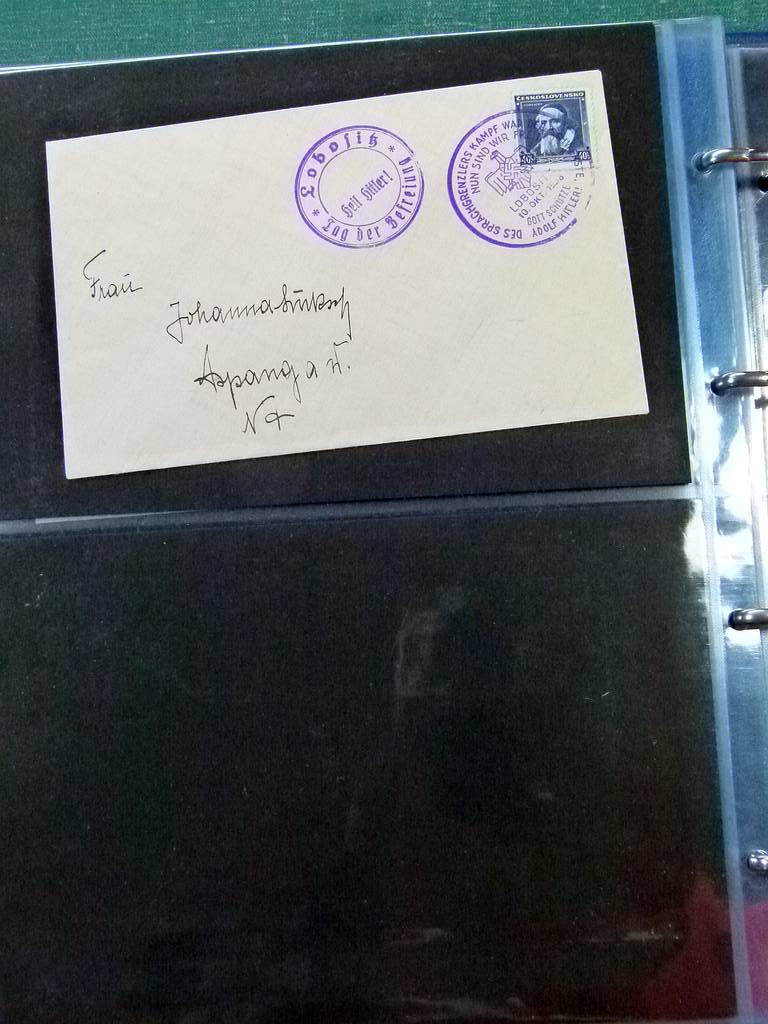 Lobositz
Heil Hitler!
* Tag der Befreiung *
ČESKOSLOVENSKO
DES SPRACHGRENZLERS KAMPF WAR
NUN SIND WIR
LOBOS
10. OKT.
GOTT SCHÜTZE
ADOLF HITLER!
Frau
Johanna
Aspang a